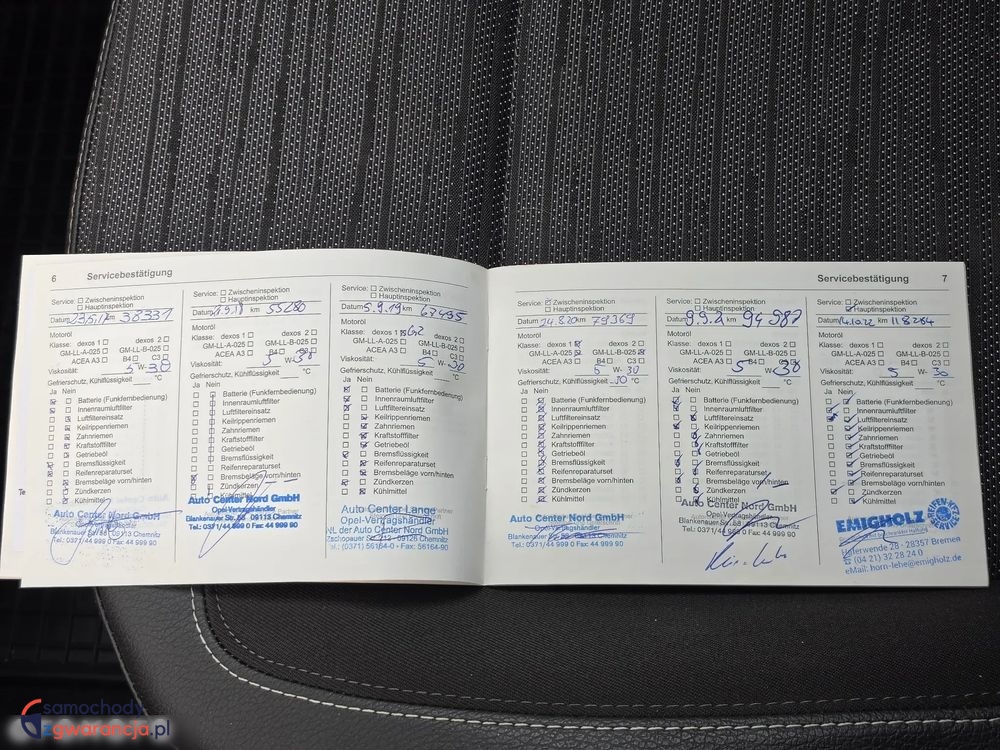 6 Servicebestätigung
Service: Zwischeninspektion
Hauptinspektion
Datum 23.5.17 km 38331
Motoröl
Klasse: dexos 1 dexos 2
GM-LL-A-025 GM-LL-B-025
ACEA A3 B4 C3
Viskosität: 5 W- 30
Gefrierschutz, Kühlflüssigkeit °C
Ja Nein
Batterie (Funkfernbedienung)
Innenraumluftfilter
Luftfiltereinsatz
Keilrippenriemen
Zahnriemen
Kraftstofffilter
Getriebeöl
Bremsflüssigkeit
Reifenreparaturset
Bremsbeläge vorn/hinten
Zündkerzen
Kühlmittel
Auto Center Nord GmbH
Blankenauer Str. 88 09113 Chemnitz
Tel.: 0371/44 999 0 Fax: 44 999 90
Te
Service: Zwischeninspektion
Hauptinspektion
Datum km 55280
Motoröl
Klasse: dexos 1 dexos 2
GM-LL-A-025 GM-LL-B-025
ACEA A3 B4 C3
Viskosität: 5 W- 30
Gefrierschutz, Kühlflüssigkeit °C
Ja Nein
Batterie (Funkfernbedienung)
Innenraumluftfilter
Luftfiltereinsatz
Keilrippenriemen
Zahnriemen
Kraftstofffilter
Getriebeöl
Bremsflüssigkeit
Reifenreparaturset
Bremsbeläge vorn/hinten
Zündkerzen
Kühlmittel
Auto Center Nord GmbH
Opel-Vertragshändler
Blankenauer Str. 88 09113 Chemnitz
Tel.: 0371/44 999 0 Fax: 44 999 90
Service: Zwischeninspektion
Hauptinspektion
Datum 5.9.19 km 67435
Motoröl
Klasse: dexos 1 dexos 2
GM-LL-A-025 GM-LL-B-025
ACEA A3 B4 C3
Viskosität: 5 W- 30
Gefrierschutz, Kühlflüssigkeit °C
Ja Nein
Batterie (Funkfernbedienung)
Innenraumluftfilter
Luftfiltereinsatz
Keilrippenriemen
Zahnriemen
Kraftstofffilter
Getriebeöl
Bremsflüssigkeit
Reifenreparaturset
Bremsbeläge vorn/hinten
Zündkerzen
Kühlmittel
Auto Center Lange
Opel-Vertragshändler
NL der Auto Center Nord GmbH
Zschopauer Str. 09126 Chemnitz
Tel.: (0371) 56164-0 • Fax: 56164-90
Servicebestätigung 7
Service: Zwischeninspektion
Hauptinspektion
Datum 24.8.20 km 79369
Motoröl
Klasse: dexos 1 dexos 2
GM-LL-A-025 GM-LL-B-025
ACEA A3 B4 C3
Viskosität: 5 W- 30
Gefrierschutz, Kühlflüssigkeit -30 °C
Ja Nein
Batterie (Funkfernbedienung)
Innenraumluftfilter
Luftfiltereinsatz
Keilrippenriemen
Zahnriemen
Kraftstofffilter
Getriebeöl
Bremsflüssigkeit
Reifenreparaturset
Bremsbeläge vorn/hinten
Zündkerzen
Kühlmittel
Auto Center Nord GmbH
Opel-Vertragshändler
Blankenauer Str. 88 09113 Chemnitz
Tel.: 0371/44 999 0 Fax: 44 999 90
Service: Zwischeninspektion
Hauptinspektion
Datum km 94 987
Motoröl
Klasse: dexos 1 dexos 2
GM-LL-A-025 GM-LL-B-025
ACEA A3 B4 C3
Viskosität: 5 W- 30
Gefrierschutz, Kühlflüssigkeit °C
Ja Nein
Batterie (Funkfernbedienung)
Innenraumluftfilter
Luftfiltereinsatz
Keilrippenriemen
Zahnriemen
Kraftstofffilter
Getriebeöl
Bremsflüssigkeit
Reifenreparaturset
Bremsbeläge vorn/hinten
Zündkerzen
Kühlmittel
Auto Center Nord GmbH
Opel-Vertragshändler
Blankenauer Str. 88 09113 Chemnitz
Tel.: 0371/44 999 0 Fax: 44 999 90
Service: Zwischeninspektion
Hauptinspektion
Datum 14.10.22 km 118264
Motoröl
Klasse: dexos 1 dexos 2
GM-LL-A-025 GM-LL-B-025
ACEA A3 B4 C3
Viskosität: 5 W- 30
Gefrierschutz, Kühlflüssigkeit °C
Ja Nein
Batterie (Funkfernbedienung)
Innenraumluftfilter
Luftfiltereinsatz
Keilrippenriemen
Zahnriemen
Kraftstofffilter
Getriebeöl
Bremsflüssigkeit
Reifenreparaturset
Bremsbeläge vorn/hinten
Zündkerzen
Kühlmittel
EMIGHOLZ
Haferwende 28 - 28357 Bremen
(04 21) 32 28 24 0
eMail: horn-lehe@emigholz.de
samochody
zgwarancją.pl